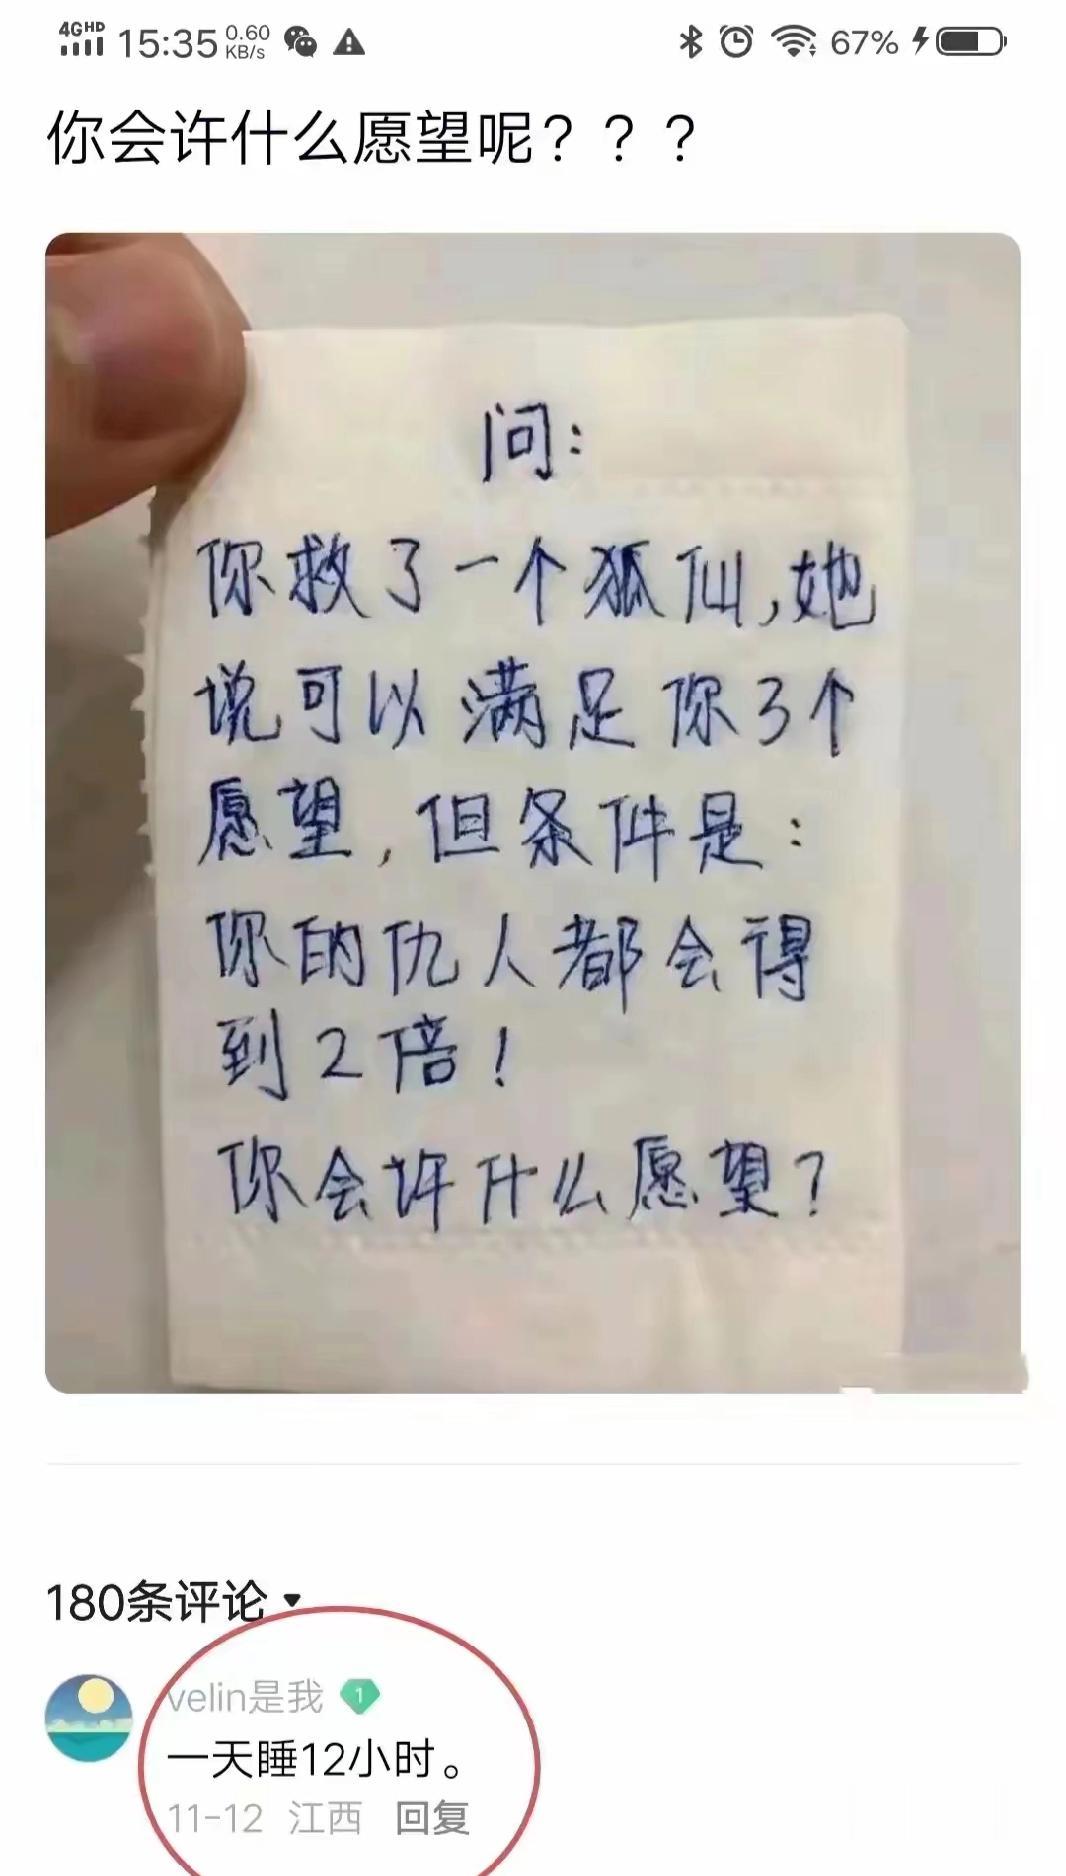 4GHD 15:35 0.60 KB/s 67%
你会许什么愿望呢？？？
问：
你救了一个狐仙,她
说可以满足你3个
愿望,但条件是：
你的仇人都会得
到2倍！
你会许什么愿望？
180条评论
velin是我 1
一天睡12小时。
11-12 江西 回复